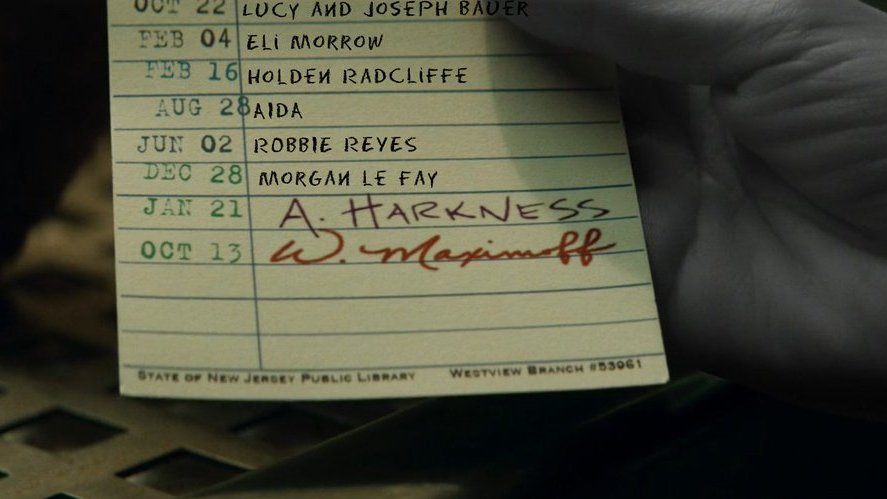 OCT 22 LUCY AND JOSEPH BAUER
FEB 04 ELI MORROW
FEB 16 HOLDEN RADCLIFFE
AUG 28 AIDA
JUN 02 ROBBIE REYES
DEC 28 MORGAN LE FAY
JAN 21 A. HARKNESS
OCT 13 W. Maximoff
STATE OF NEW JERSEY PUBLIC LIBRARY WESTVIEW BRANCH #53961